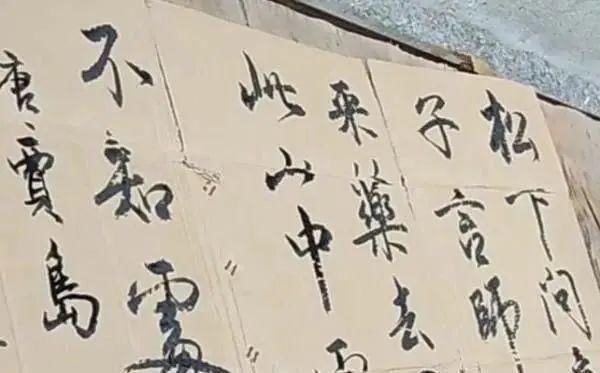 松下問
子言師
采藥去
此山中
不知處
唐賈島